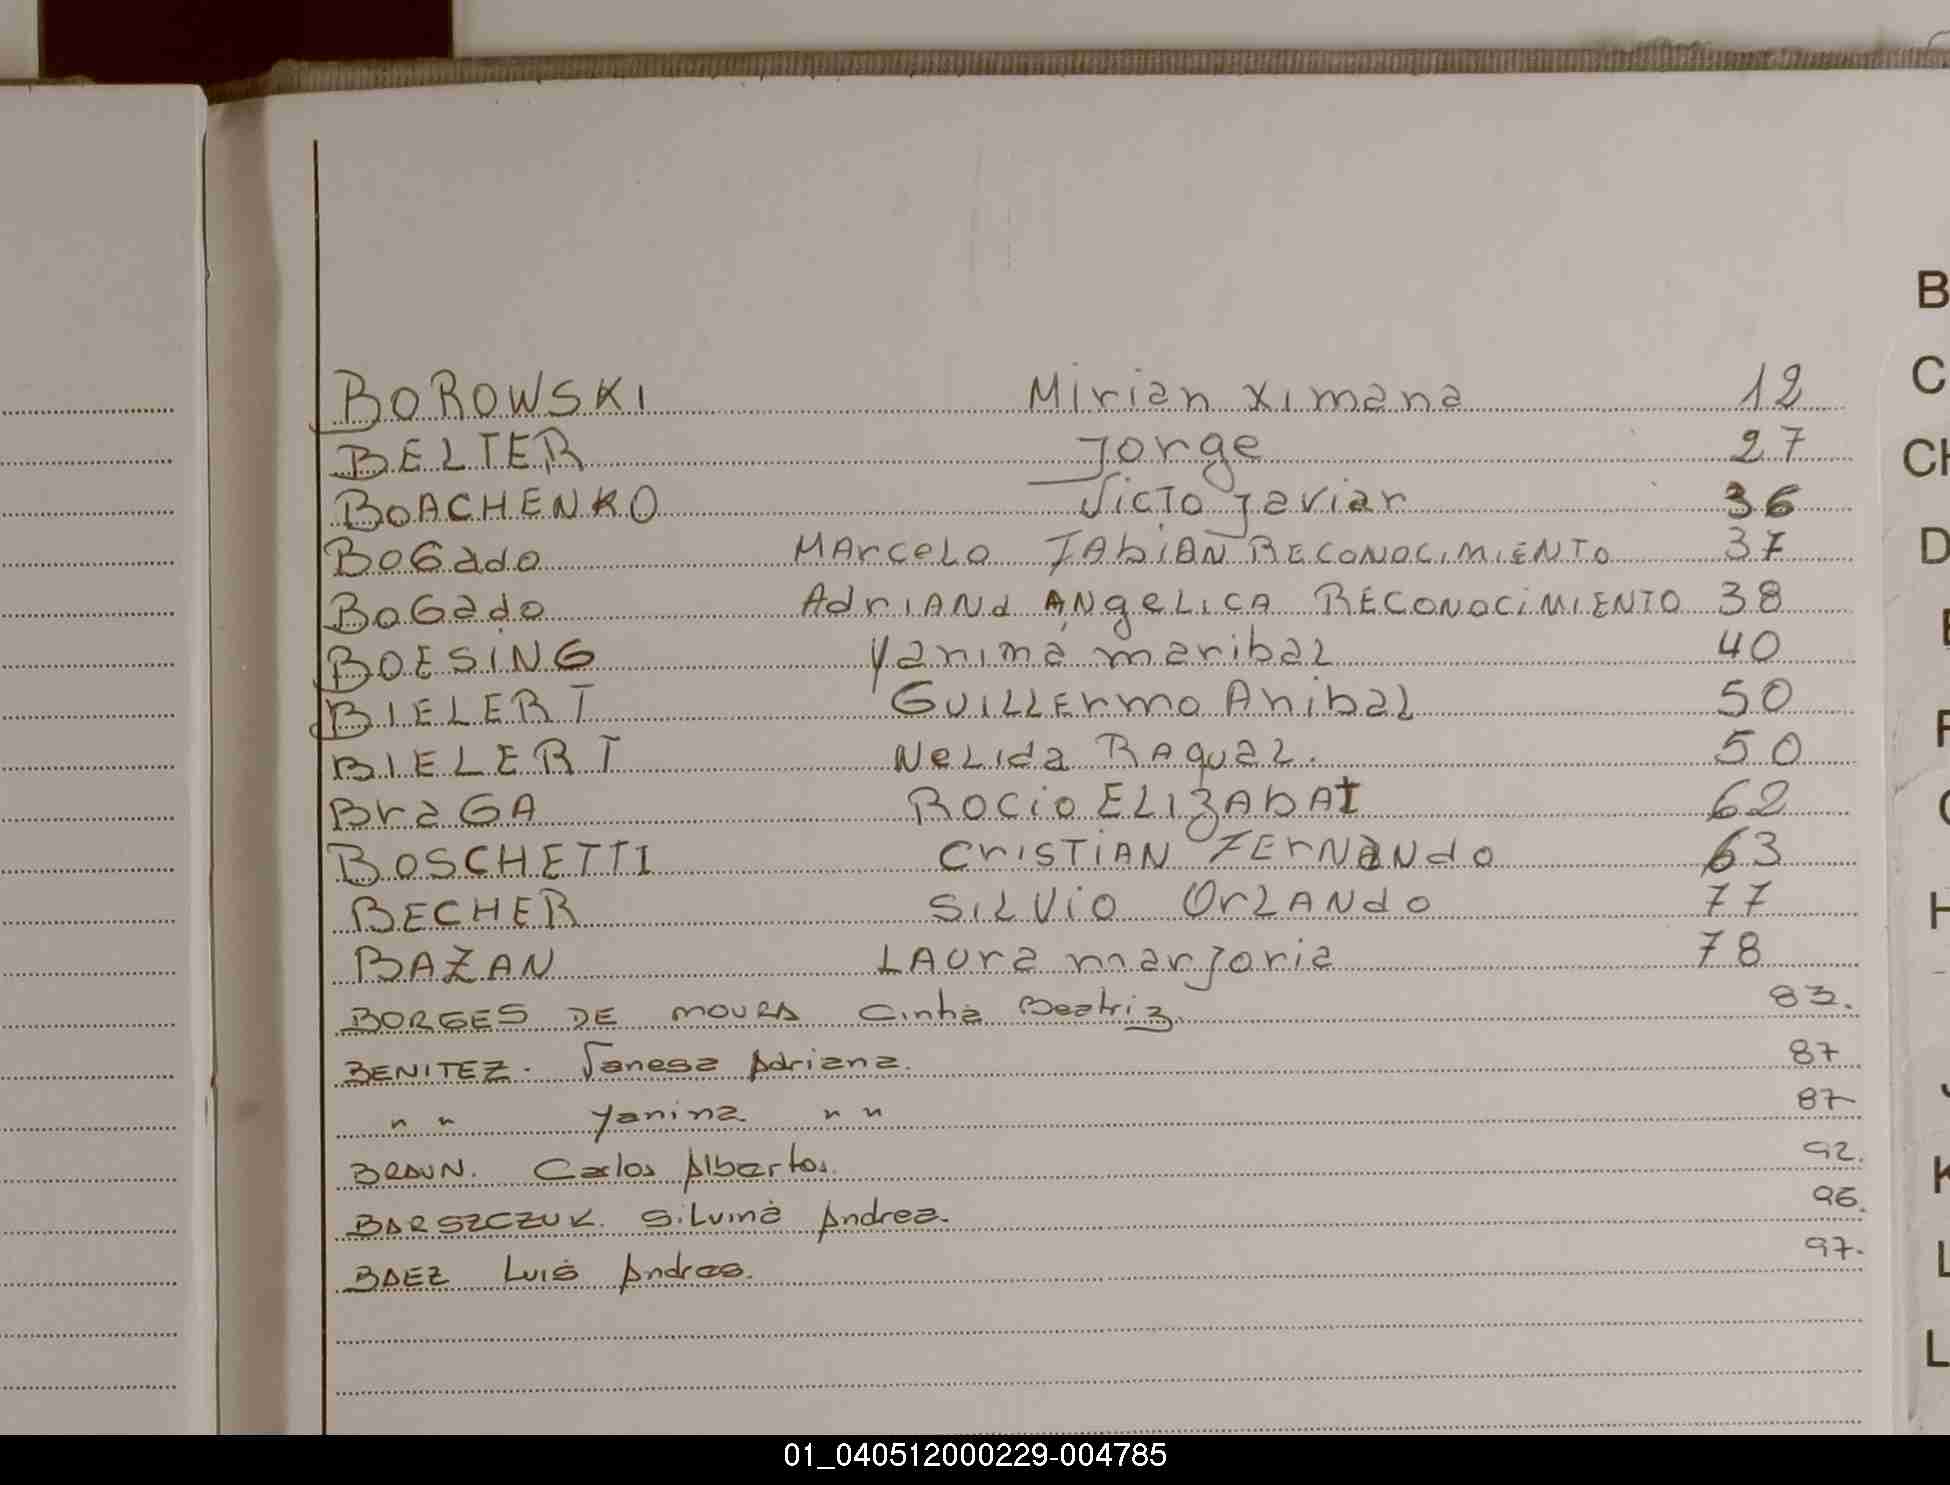 BOROWSKI Mirian Ximena 12
BELTER Jorge 27
BOACHENKO Victo Javier 36
BOGado MArceLo FAbiAN RECONOCIMIENTO 37
BOGado AdriANa ANgeLICA RECONOCIMIENTO 38
BOESING Yanina maribel 40
BIELERT GUILLErmo Anibal 50
BIELERT NeLida RAquel. 50
BraGA ROCio ELIZAbAT 62
BOSCHETTI CrISTIAN FErNANdo 63
BECHER SiLViO OrLANdo 77
BAZAN LAUra marjorie 78
BORGES DE MOURA Cinhia Beatriz. 83.
BENITEZ. Vanesa Adriana. 87
" " Yanina " " 87
BRAUN. Carlos Alberto. 92.
BARSZCZUK. Silvina Andrea. 96.
BAEZ Luis Andres. 97.
B
C
CH
D
E
F
G
H
J
K
L
L
01_040512000229-004785